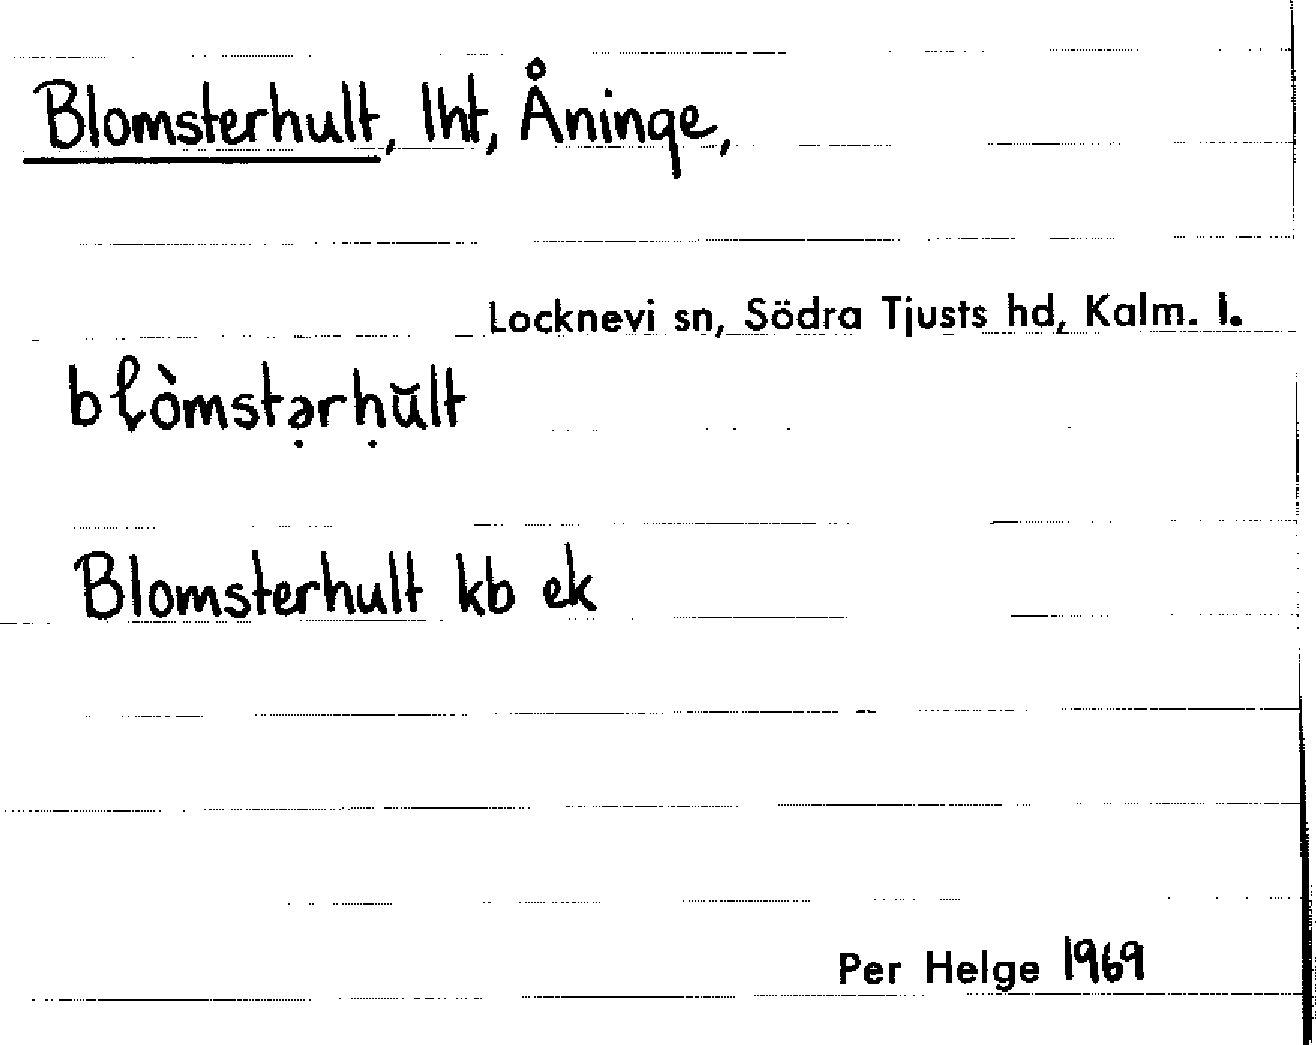 Blomsterhult, lht, Åninge,
Locknevi sn, Södra Tjusts hd, Kalm. l.
bɬòmstə̣rḥŭlt
Blomsterhult kb ek
Per Helge 1969